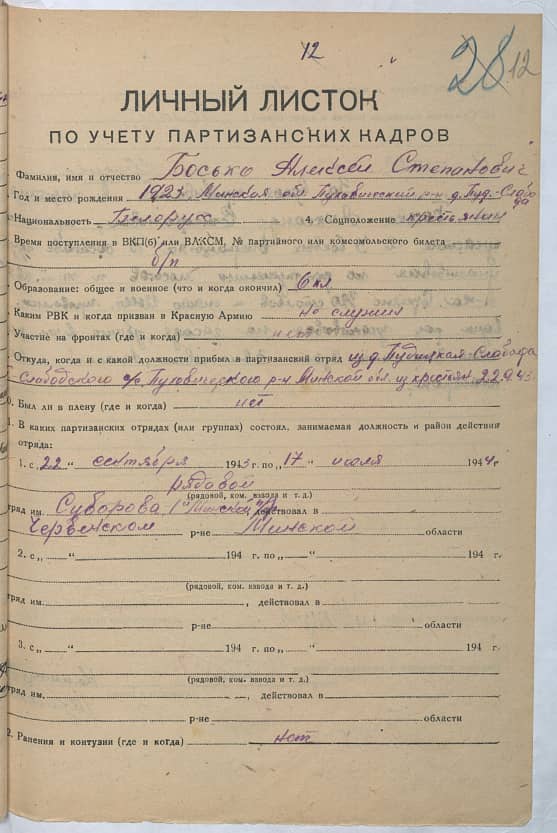 12
28 12
ЛИЧНЫЙ ЛИСТОК
ПО УЧЕТУ ПАРТИЗАНСКИХ КАДРОВ
Фамилия, имя и отчество Босько Алексей Степанович
Год и место рождения 1923 Минская обл Пуховичский р-н д. Пуд. Слобода
Национальность Белорус 4. Соцположение крестьянин
Время поступления в ВКП(б) или ВЛКСМ, № партийного или комсомольского билета
б/п
Образование: общее и военное (что и когда окончил) 6 кл
Каким РВК и когда призван в Красную Армию не служил
Участие на фронтах (где и когда) нет
Откуда, когда и с какой должности прибыл в партизанский отряд из д. Пудицкая-Слобода
Слободского с/с Пуховичского р-н Минской обл. из крестьян. 22.9.43
0. Был ли в плену (где и когда) нет
1. В каких партизанских отрядах (или группах) состоял, занимаемая должность и район действия
отряда:
1. с „22“ сентября 1943 г. по „17“ июля 1944 г
рядовой
(рядовой, ком. взвода и т. д.)
тряд им. Суворова действовал в
Червенском р-не Минской области
2. с „ “ 194 г. по „ “ 194 г.
(рядовой, ком. взвода и т. д.)
тряд им. , действовал в
р-не области
3. с „ “ 194 г. по „ “ 194 г
(рядовой, ком. взвода и т. д.)
тряд им. , действовал в
р-не области
2. Ранения и контузии (где и когда) нет